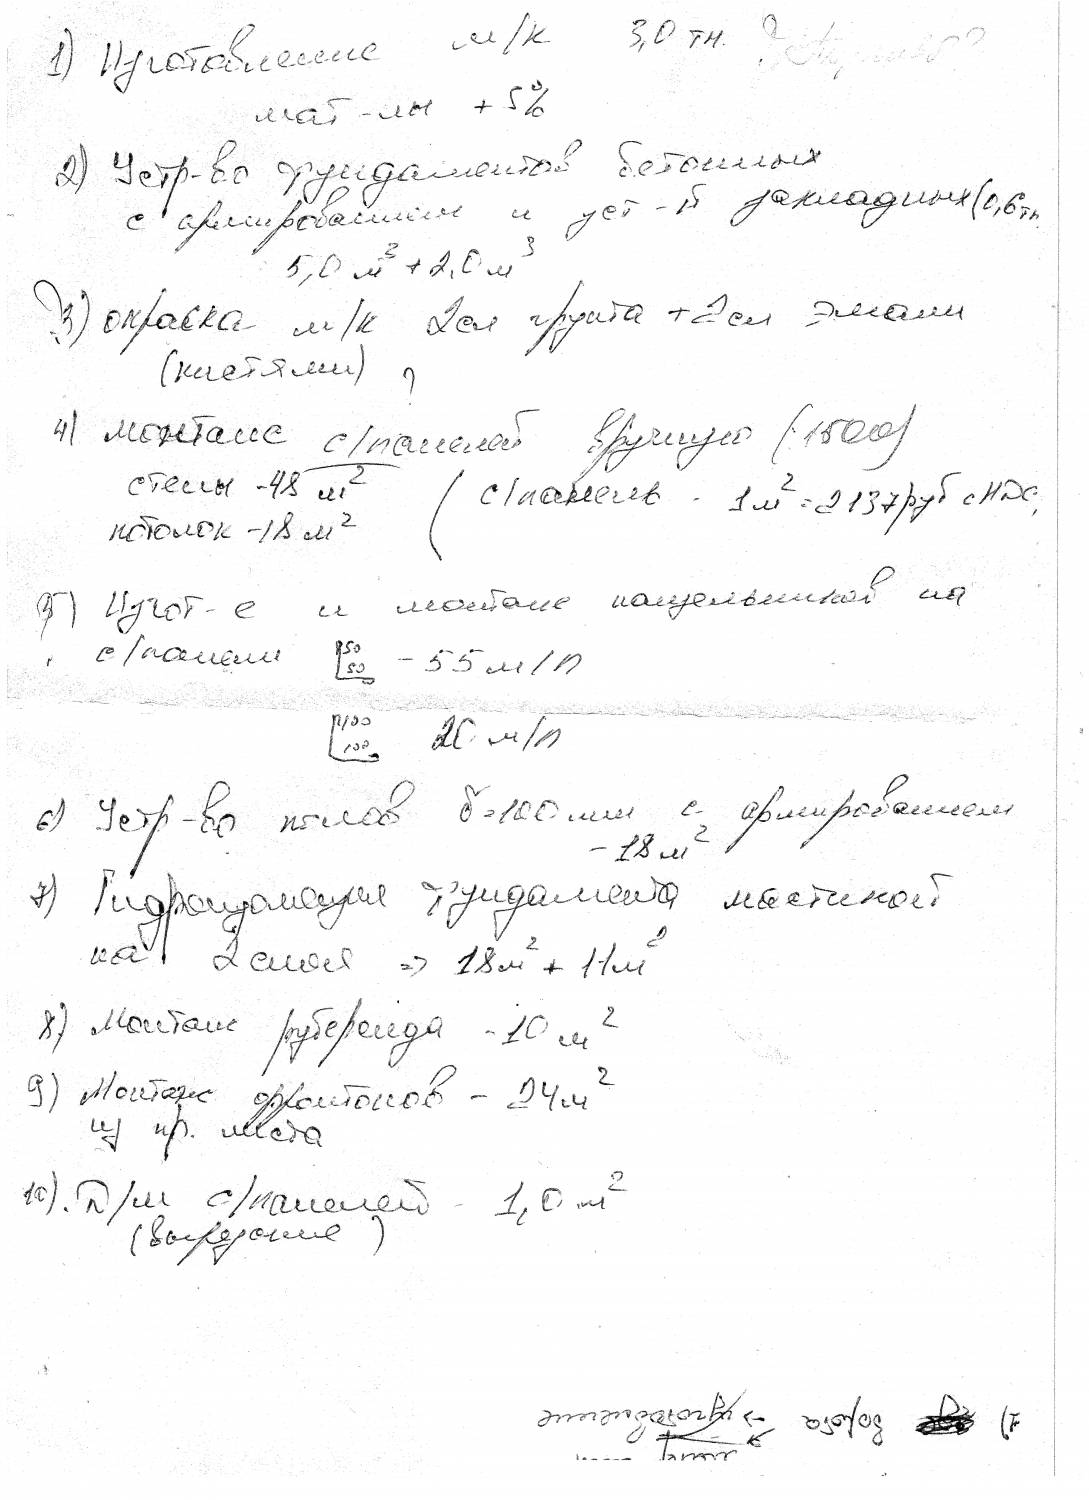 1) Изготовление м/к 3,0 тн. ?
мат-лы + 5%
2) Устр-во фундаментов бетонных
с армированием и уст-й закладных (0,6 тн.
5,0 м³ + 2,0 м³
3) окраска м/к 2 сл грунта + 2 сл эмали
(кистями) ?
4) монтаж с/панелей вручную (1500)
стены - 48 м² ( с/панель - 1 м² = 2137 руб с НДС,
потолок - 18 м²
5) Изгот-е и монтаж нащельников на
с/панели 50 50 - 55 м/п
100 100 20 м/п
6) Устр-во полов б=100 мм с армированием
- 18 м²
7) Гидроизоляция фундамента мастикой
на 2 слоя => 18 м² + 11 м²
8) Монтаж рубероида - 10 м²
9) Монтаж фронтонов - 24 м²
из пр. листа
10). Д/м с/панелей - 1,0 м²
(вырезание)
7) ворота -> изготовление